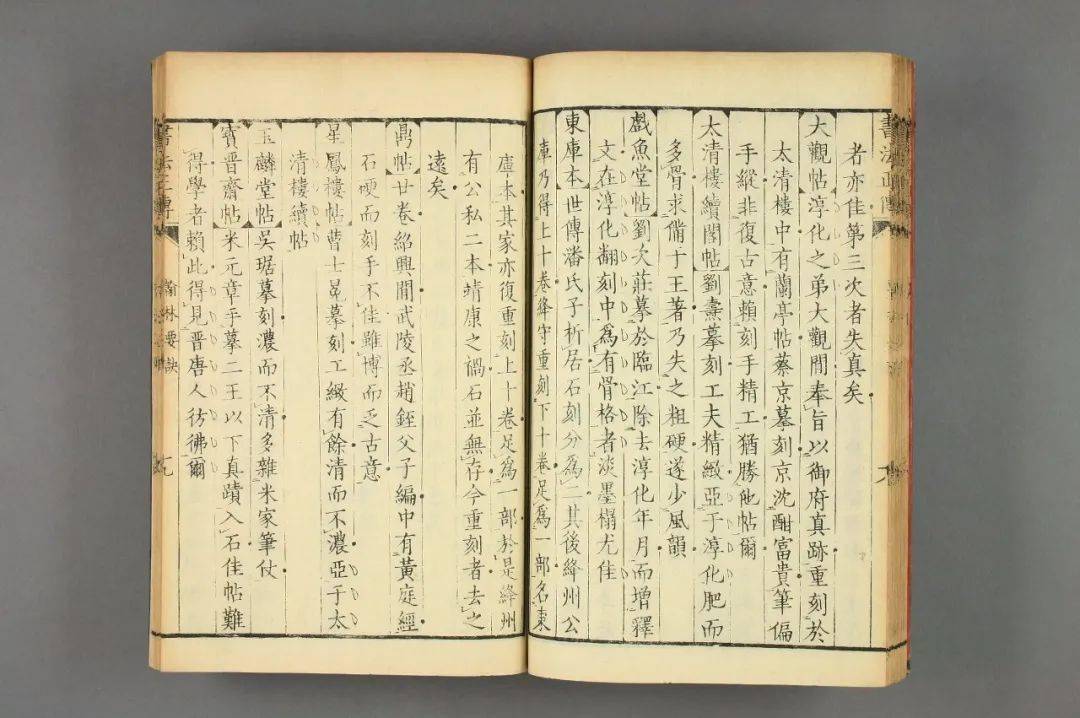 者亦佳第三次者失真矣
大觀帖淳化之弟大觀間奉旨以御府真跡重刻於
太清樓中有蘭亭帖蔡京摹刻京沈酣富貴筆偏
手縱非復古意賴刻手精工猶勝他帖爾
太清樓續閣帖劉燾摹刻工夫精緻亞于淳化肥而
多骨求備于王著乃失之粗硬遂少風韻
戲魚堂帖劉次莊摹於臨江除去淳化年月而增釋
文在淳化翻刻中爲有骨格者淡墨榻尤佳
東庫本世傳潘氏子析居石刻分爲二其後絳州公
庫乃得上十卷絳守重刻下十卷足爲一部名東
庫本其家亦復重刻上十卷足爲一部於是絳州
有公私二本靖康之禍石並無存今重刻者去之
遠矣
鼎帖廿卷紹興間武陵丞趙銍父子編中有黃庭經
石硬而刻手不佳雖博而乏古意
星鳳樓帖曹士冕摹刻工緻有餘清而不濃亞于太
清樓續帖
玉麟堂帖吳琚摹刻濃而不清多雜米家筆仗
寶晉齋帖米元章手摹二王以下真蹟入石佳帖難
得學者賴此得見晉唐人彷彿爾
書法正傳
翰林要訣